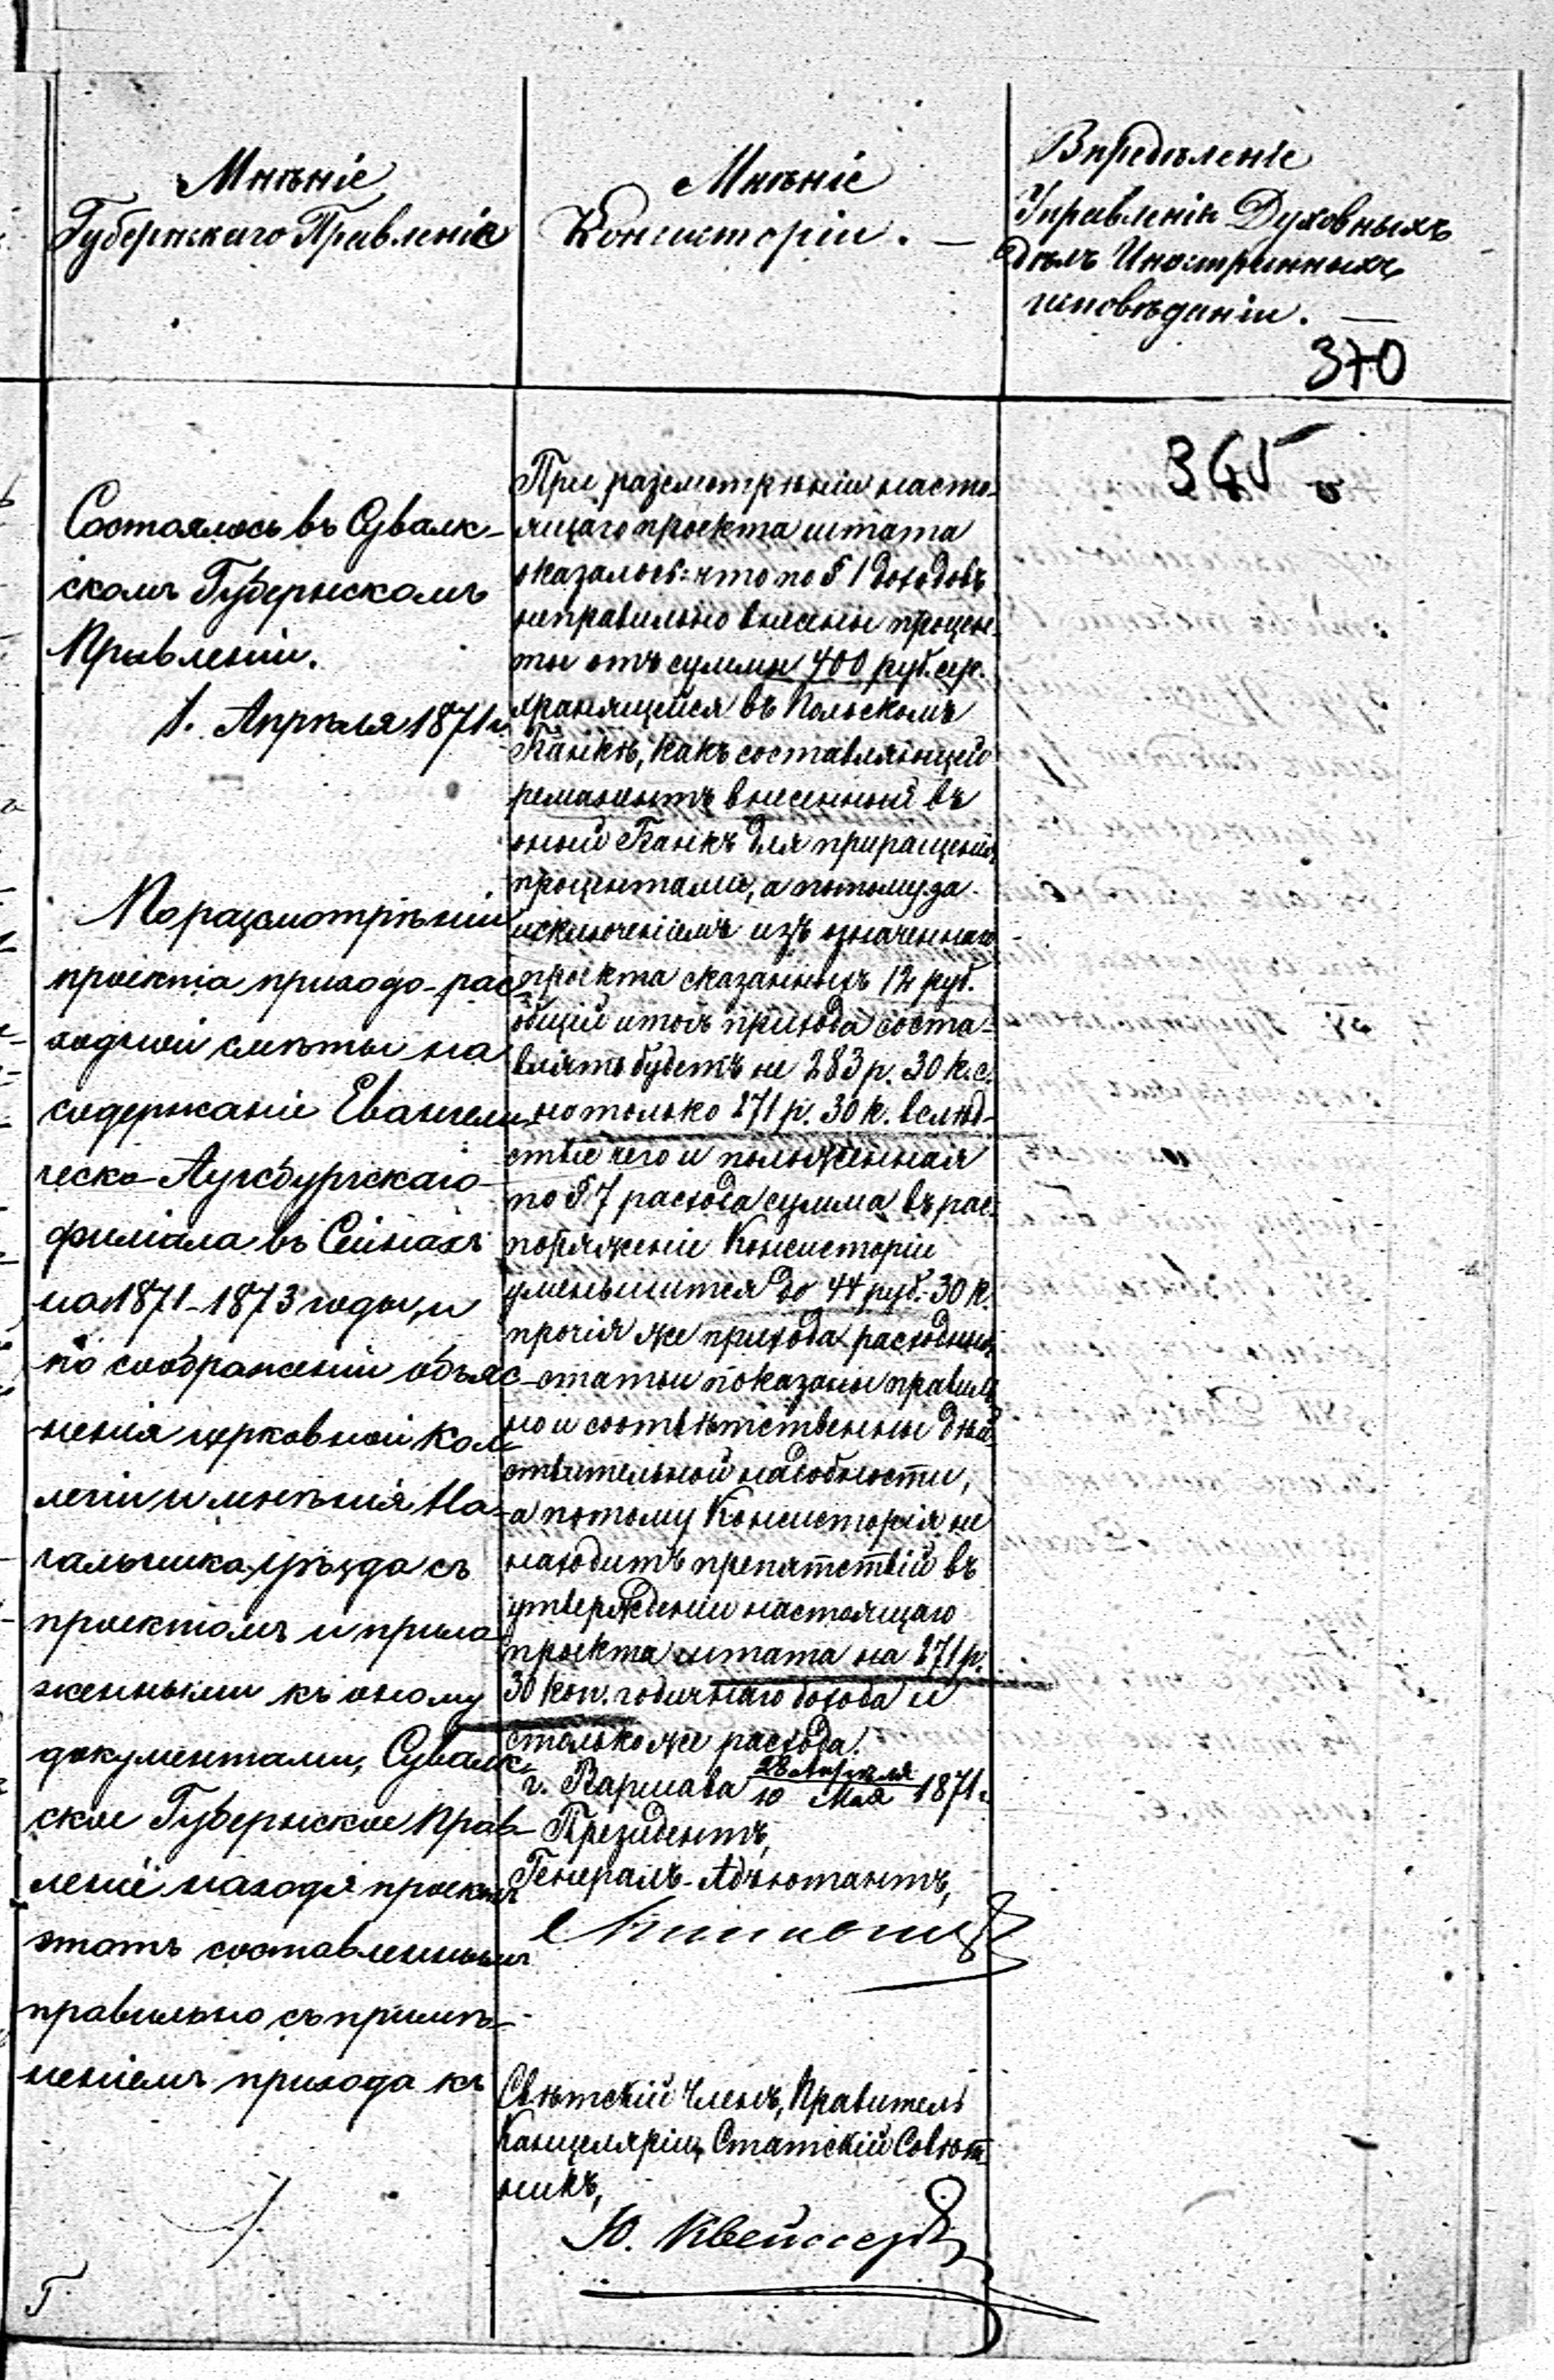 Мнѣніе
Губернскаго Правленія
Состоялось въ Сувалк-
скомъ Губернскомъ
Правленіи.
1. Апрѣля 1871 г.
По разсмотрѣніи
проекта приходо-рас
ходной смѣты на
содержаніе Евангели
ческо-Аугсбургскаго
филіала въ Сейнахъ
на 1871-1873 годы, и
по соображеніи объяс
ненія церковной Кол
легіи и мнѣнія На-
чальника уѣзда съ
проектомъ и прило
женными къ оному
документами, Сувалк-
ское Губернское Прав
леніе находя проектъ
этотъ составленнымъ
правильно съ примѣ-
неніемъ прихода къ
Мнѣніе
Консисторіи. —
При разсмотрѣніи насто-
ящаго проекта штата
оказалось: что по § 1 доходовъ
неправильно внесены процен-
ты отъ суммы 400 руб. сер.
хранящейся въ Польскомъ
Банкѣ, какъ составляющей
ремонентъ внесенный въ
оный Банкъ для приращенія
процентами, а потому за
исключеніемъ изъ означеннаго
проекта сказанныхъ 12 руб.
общій итогъ прихода соста-
влять будетъ не 283 р. 30 к. с.
но только 271 р. 30 к. вслѣд-
ствіе чего и положенная
по § 7 расхода сумма въ рас-
поряженіе Консисторіи
уменьшится до 44 руб. 30 к.
прочія же прихода расходныя
статьи показаны правиль
но и соотвѣтственны дѣй-
ствительной надобности,
а потому Консисторія не
находитъ препятствій въ
утвержденіи настоящаго
проекта штата на 271 р.
30 коп. годичнаго дохода и
столько же расхода.
г. Варшава 28 Апрѣля / 10 Мая 1871 г.
Президентъ,
Генералъ-Адъютантъ,
Свѣтскій Членъ, Правитель
Канцеляріи, Статскій Совѣт-
никъ,
Ю. Квейссеръ
Управленія Духовныхъ
дѣлъ Иностранныхъ
исповѣданіи. —
370
365